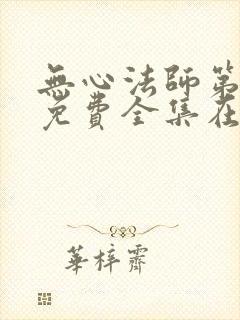 無心法師第
免費全集在
華梓齋